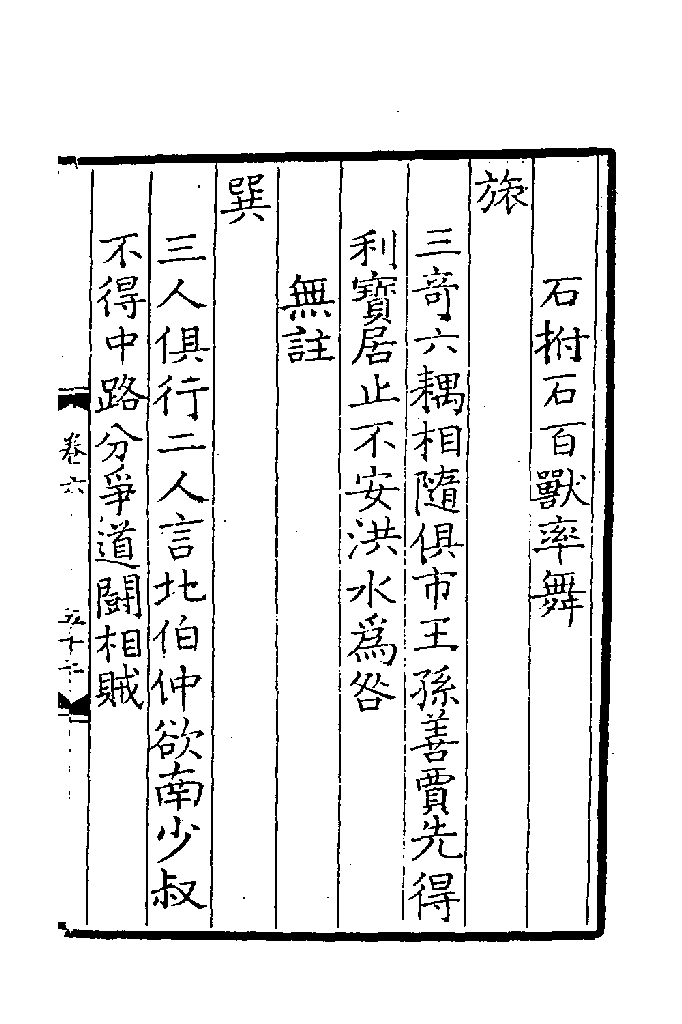 石拊石百獸率舞
旅
三奇六耦相隨俱市王孫善賈先得
利寶居止不安洪水爲咎
無註
巽
三人俱行二人言北伯仲欲南少叔
不得中路分爭道鬪相賊
卷六
五十二